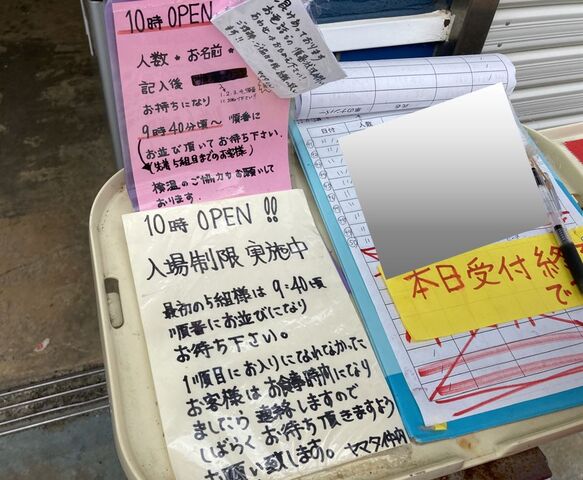 10時 OPEN
人数・お名前
記入後
お待ちになり
9時40分頃〜 順番に
お並び頂いてお待ち下さい。
(先着5組目までのお客様)
検温のご協力もお願いして
おります。
10時 OPEN !!
入場制限 実施中
最初の5組様は 9:40頃
順番にお並びになり
お待ち下さい。
1順目にお入りになれなかった
お客様はお食事時間になり
ましたら 連絡しますので
しばらく お待ち頂きますよう
お願い致します。 ヤマタ仲村
日付 人数
氏名
車のナンバー
本日受付終
で